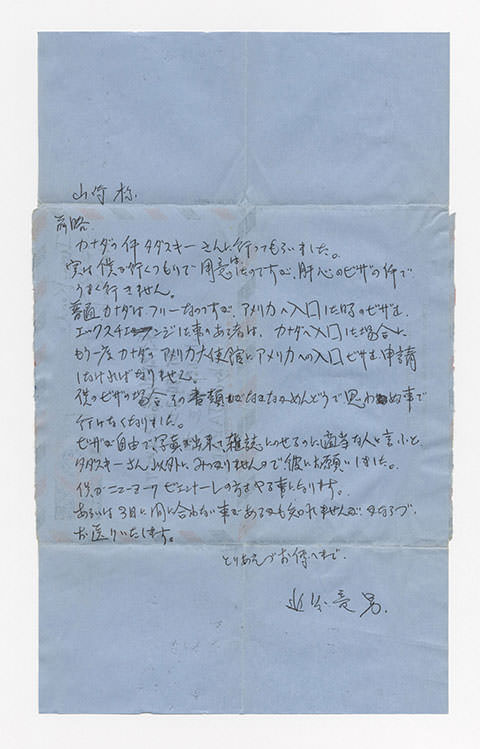 山崎様
前略
カナダの件タダスキーさんに行ってもらいました。
実は僕が行くつもりで用意はしたのですが、肝心のビザの件で
うまく行きません。
普通カナダはフリーなのですが、アメリカへ入口した時のビザが
エックスチェンジに事のある者は、カナダへ入口した場合に
もう一度カナダのアメリカ大使館にアメリカへの入口ビザを申請
しなければなりません。
僕のビザの場合その書類がなかなかめんどうで思わぬ事で
行けなくなりました。
ビザが自由で写真が出来て雑誌にのせるのに適当な人と言ふと
タダスキーさん以外にみつかりませんので彼にお願いしました。
僕がニューヨークビエンナーレの方をやる事になります。
あるいは3日に間に合わない事があるかも知れませんが
お送りいたします。
とりあえづお侍へまで